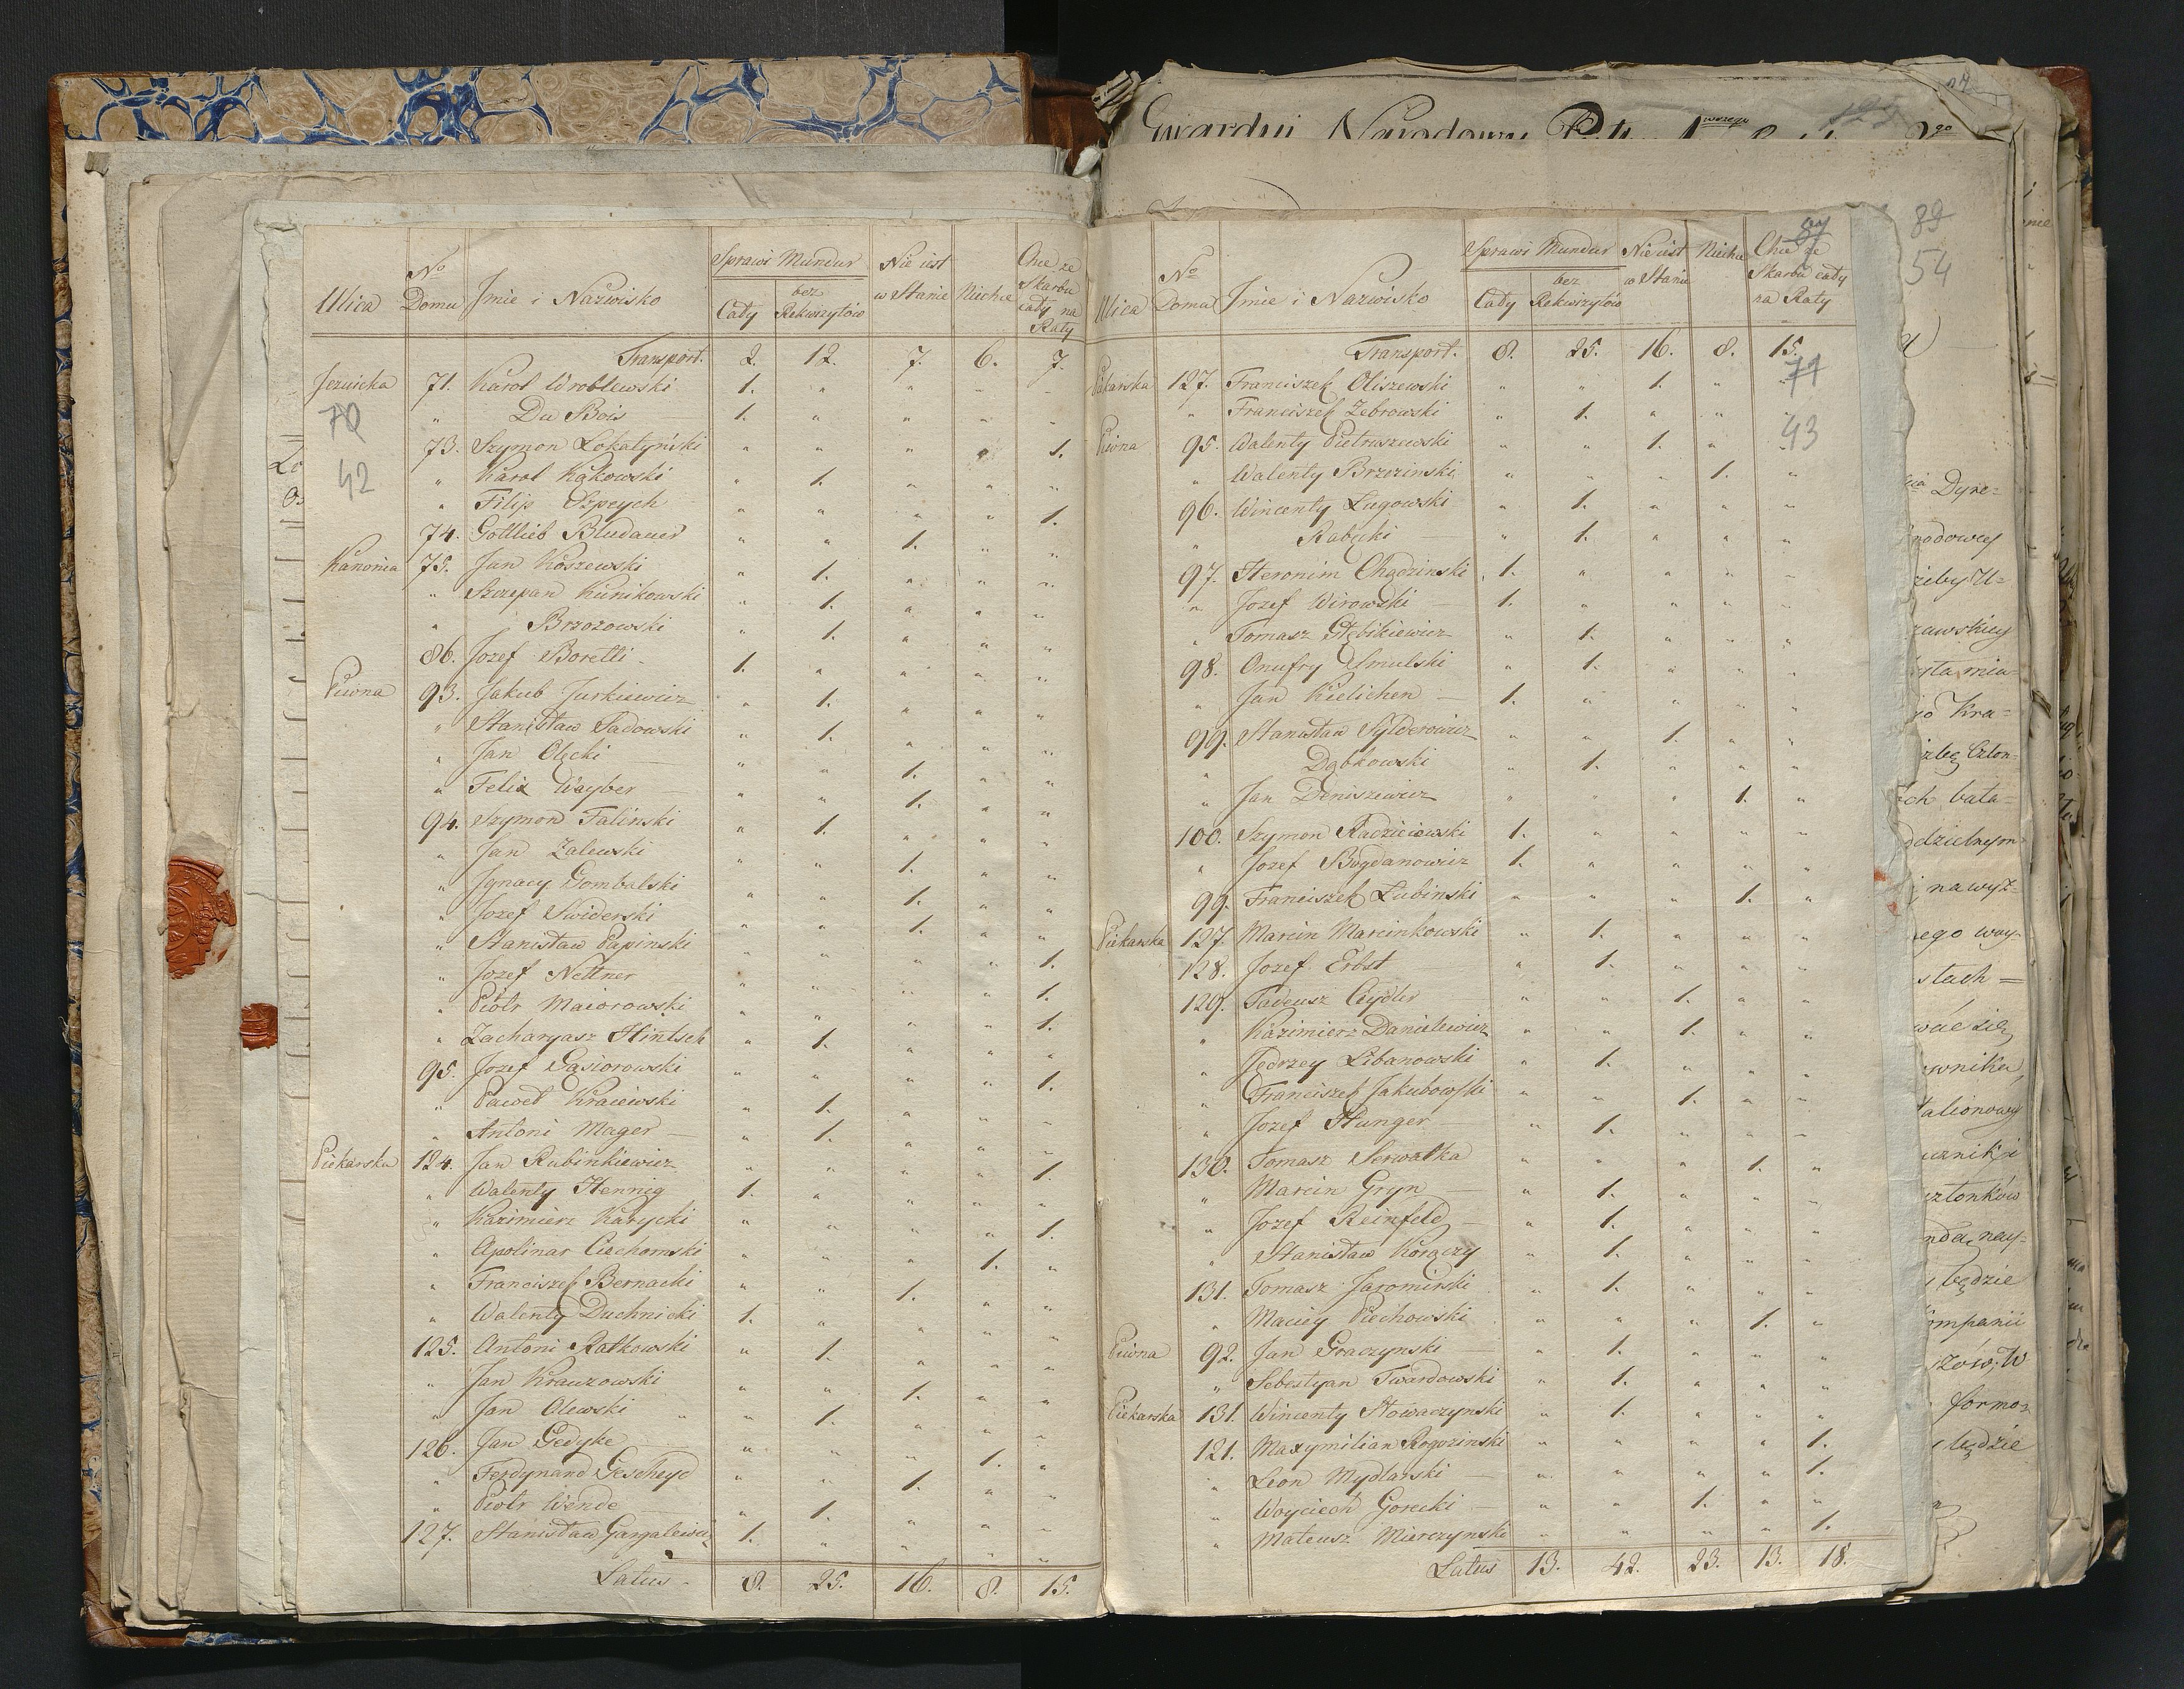 Ulica No Domu Jmie i Nazwisko Sprawi Mundur Cały bez Rekwizytów Nie iest w Stanie Niechce Chce ze Skarbu cały na Raty
Transport. 2. 12. 7. 6. 7.
Jezuicka 71. Karol Wroblewski 1. " " " "
70
" Du Bois 1. " " " "
73. Szymon Lokatyński " " " " 1.
42
" Karol Kąkowski " 1. " " "
" Filip Szpeych " " " " 1.
74. Gottlieb Bludauer " " 1. " "
Kanonia 75. Jan Koszewski " 1. " " "
" Szczepan Kunikowski " 1. " " "
" Brzozowski " 1. " " "
86. Jozef Boretti 1. " " " "
Piwna 93. Jakub Jurkiewicz " 1. " " "
" Stanisław Sadowski " 1. " " "
" Jan Olęcki " " 1. " "
" Felix Wayber " " 1. " "
94. Szymon Falinski " 1. " " "
" Jan Zalewski " " 1. " "
" Jgnacy Gombalski " " 1. " "
" Jozef Swiderski " " 1. " "
" Stanisław Papinski " " " " 1.
" Jozef Nettner " " " " 1.
" Piotr Maiorowski " " " " 1.
" Zacharyasz Hintsch " 1. " " "
95. Jozef Gąsiorowski " " " " 1.
" Paweł Kraiewski " 1. " " "
" Antoni Mager " 1. " " "
Piekarska 124. Jan Rubinkiewicz " " " " 1.
" Walenty Hennig 1. " " " "
" Kazimierz Karycki " " " " 1.
" Apolinar Ciechomski " " " 1. "
" Franciszek Bernacki " " 1. " "
" Walenty Duchnicki 1. " " " "
125. Antoni Ratkowski " 1. " " "
" Jan Krauzowski " " 1. " "
" Jan Olewski " 1. " " "
126. Jan Gedyke " " " 1. "
" Ferdynand Gescheyd " " 1. " "
" Piotr Wende " 1. " " "
127. Stanisław Gargalewicz 1. " " " "
Latus 8. 25. 16. 8. 15.
Gwardyi Narodowey
89
54
87
Ulica No Domu Jmie i Nazwisko Sprawi Mundur Cały bez Rekwizytów Nie iest w Stanie Niechce Chce ze Skarbu cały na Raty
Transport. 8. 25. 16. 8. 15.
77
Piekarska 127. Franciszek Oliszewski " " 1. " "
" Franciszek Zebrowski " 1. " " "
43
Piwna 95. Walenty Pietruszewski " " 1. " "
" Walenty Brzezinski " " " 1. "
96. Wincenty Ługowski " 1. " " "
" Rabęcki " 1. " " "
97. Heronim Chądzinski 1. " " " "
" Jozef Wirowski 1. " " " "
" Tomasz Głębikiewicz " 1. " " "
98. Onufry Smulski " 1. " " "
" Jan Kielichen 1. " " " "
99. Stanisław Sylderowicz " " 1. " "
" Dąbkowski " 1. " " "
" Jan Deniszewicz " " " 1. "
100. Szymon Radzieiewski 1. " " " "
" Jozef Bogdanowicz 1. " " " "
99. Franciszek Łubinski " " " 1. "
Piekarska 127. Marcin Marcinkowski " 1. " " "
128. Jozef Erbst " 1. " " "
129. Tadeusz Cydler " " 1. " "
" Kazimierz Danielewicz " " 1. " "
" Jędrzey Libanowski " 1. " " "
" Franciszek Jakubowski " " 1. " "
" Jozef Hunger " 1. " " "
130. Tomasz Serwatka " " " 1. "
" Marcin Gryn " 1. " " "
" Jozef Reinfeld " 1. " " "
" Stanisław Korączy " 1. " " "
131. Tomasz Jaromirski " 1. " " "
" Maciey Piechowski " " " 1. "
Piwna 92. Jan Graczynski " 1. " " "
" Sebestyan Twardowski " 1. " " "
Piekarska 131. Wincenty Nowaczynski " 1. " " "
121. Maxymilian Rogozinski " " " " 1.
" Leon Mydlarski " " " " 1.
" Woyciech Gorecki " " 1. " "
" Mateusz Mierczynski " " " " 1.
Latus 13. 42. 23. 13. 18.